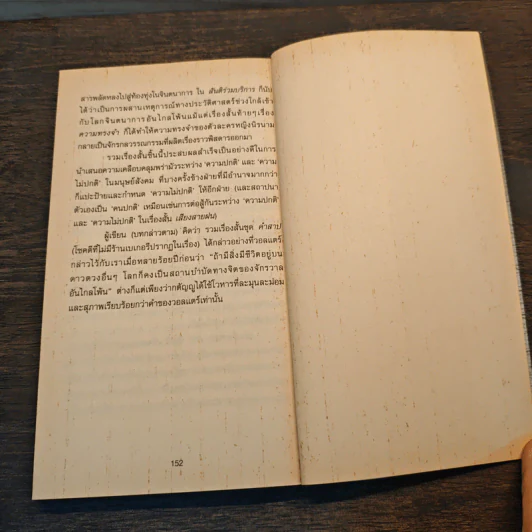 สารพลัดหลงไปสู่ท้องทุ่งในจินตนาการ ใน สันติร่วมบริการ ก็นับ
ได้ว่าเป็นการผสานเหตุการณ์ทางประวัติศาสตร์ช่วงใกล้เข้า
กับโลกจินตนาการอันไกลโพ้นแม้แต่เรื่องสั้นท้ายๆเรื่อง
ความทรงจำ ก็ได้ทำให้ความทรงจำของตัวละครหญิงนิรนาม
กลายเป็นจักรกลวรรณกรรมที่ผลิตเรื่องราวพิสดารออกมา
รวมเรื่องสั้นชิ้นนี้ประสบผลสำเร็จเป็นอย่างดีในการ
นำเสนอความเคลือบคลุมพร่ามัวระหว่าง 'ความปกติ' และ 'ความ
ไม่ปกติ' ในมนุษย์สังคม ที่บางครั้งข้างฝ่ายที่มีอำนาจมากกว่า
ก็แปะป้ายและกำหนด 'ความไม่ปกติ' ให้อีกฝ่าย (และสถาปนา
ตัวเองเป็น 'คนปกติ' เหมือนเช่นการต่อสู้กันระหว่าง 'ความปกติ'
และ 'ความไม่ปกติ' ในเรื่องสั้น เสียงสายฝน)
ผู้เขียน (บทกล่าวตาม) คิดว่า รวมเรื่องสั้นชุด คำสาป
(โชคดีที่ไม่มีร้านเบเกอรีปรากฏในเรื่อง) ได้กล่าวอย่างที่วอลแตร์
กล่าวไว้กับเราเมื่อหลายร้อยปีก่อนว่า "ถ้ามีสิ่งมีชีวิตอยู่บน
ดาวดวงอื่นๆ โลกก็คงเป็นสถานบำบัดทางจิตของจักรวาล
อันไกลโพ้น" ต่างก็แต่เพียงว่ากตัญญูได้ใช้โวหารที่ละมุนละม่อม
และสุภาพเรียบร้อยกว่าคำของวอลแตร์เท่านั้น
152